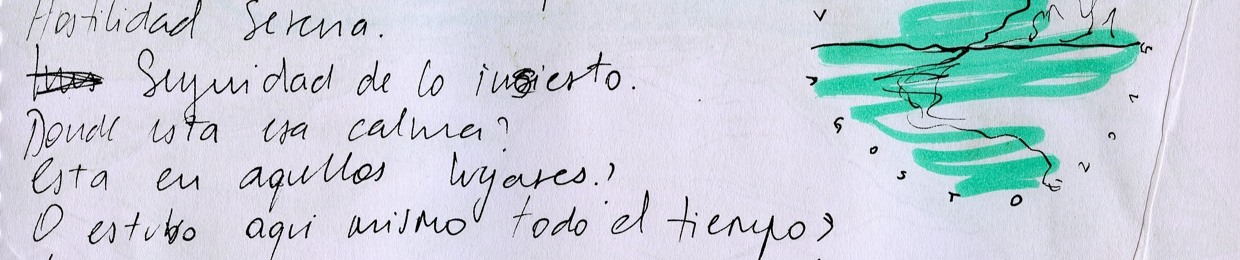 Hostilidad Serena.
Seguridad de lo insierto.
Donde esta esa calma?
Esta en aquellos lugares?
O estubo aqui mismo todo el tiempo?